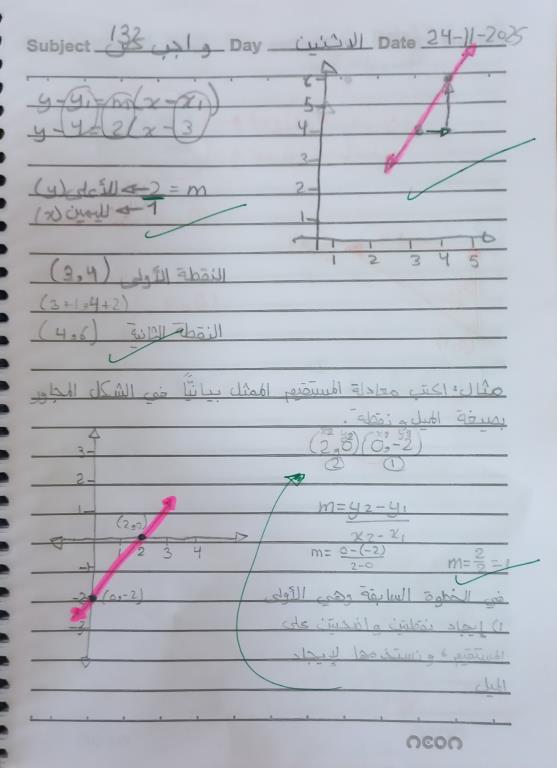 Subject واجب ص 132 Day الاثنين Date 24-11-2025
y-y₁=m(x-x₁)
y-4=2(x-3
(y) للأعلى ← 2 = m
(x) لليمين ← 1
6
5
4
3
2
1
0
1 2 3 4 5
النقطة الأولى (3,4)
(3+1,4+2)
النقطة الثانية (4,6)
مثال: اكتب معادلة المستقيم الممثل بيانيًّا في الشكل المجاور
بصيغة الميل ونقطة.
x₂ y₂ x₁ y₁
(2,0)(0,-2)
② ①
m=y₂-y₁
x₂-x₁
m= 0-(-2)
2-0
m= 2/2 =1
3
2
1
(2,0)
1 2 3 4
-1
-2 (0,-2)
-3
في الخطوة السابقة وهي الأولى
1) إيجاد نقطتين واضحتين على
المستقيم، ونستخدمها لإيجاد
الميل
neon